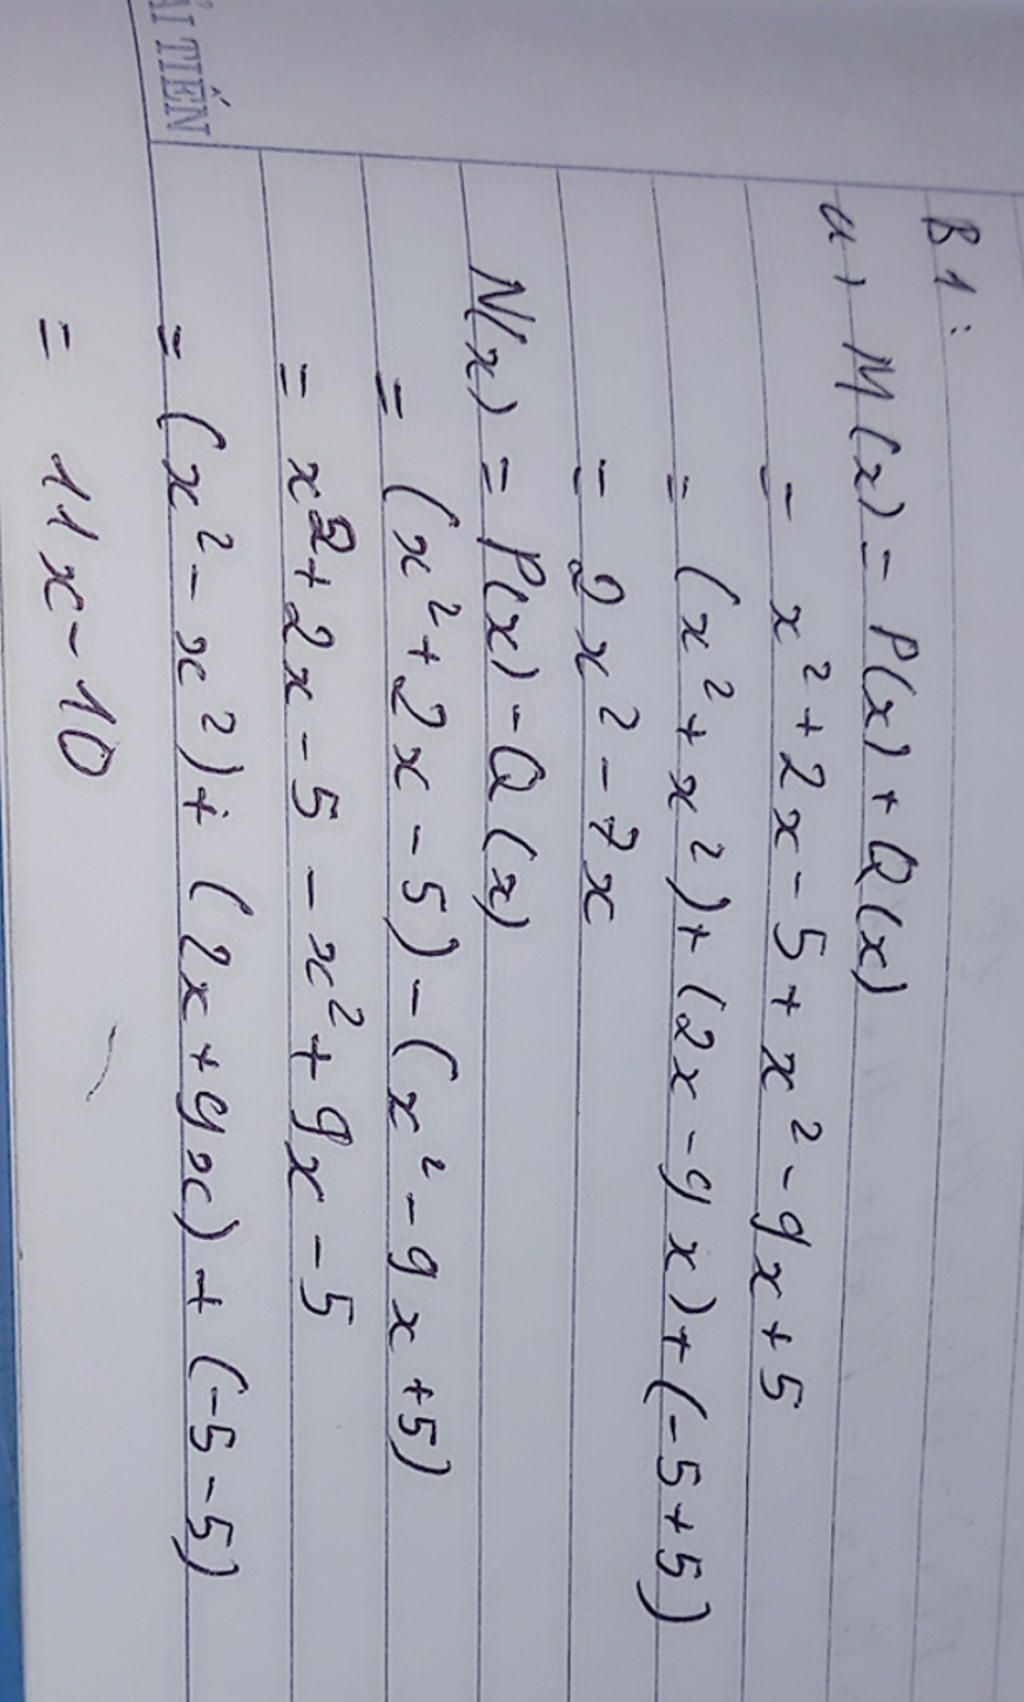 B1:
a) M(x) = P(x) + Q(x)
= x² + 2x - 5 + x² - 9x + 5
= (x² + x²) + (2x - 9x) + (-5 + 5)
= 2x² - 7x
N(x) = P(x) - Q(x)
= (x² + 2x - 5) - (x² - 9x + 5)
= x² + 2x - 5 - x² + 9x - 5
= (x² - x²) + (2x + 9x) + (-5 - 5)
= 11x - 10
TIẾN